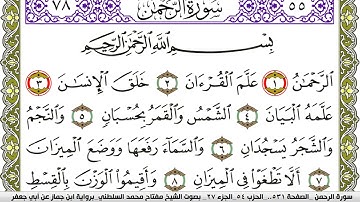 ٧٨ سُورَةُ الرَّحْمَٰن ٥٥
بِسْمِ اللَّهِ الرَّحْمَٰنِ الرَّحِيمِ
الرَّحْمَٰنُ ١ عَلَّمَ الْقُرْءَانَ ٢ خَلَقَ الْإِنسَٰنَ ٣
عَلَّمَهُ الْبَيَانَ ٤ الشَّمْسُ وَالْقَمَرُ بِحُسْبَانٍ ٥ وَالنَّجْمُ
وَالشَّجَرُ يَسْجُدَانِ ٦ وَالسَّمَآءَ رَفَعَهَا وَوَضَعَ الْمِيزَانَ
٧ أَلَّا تَطْغَوْا فِي الْمِيزَانِ ٨ وَأَقِيمُوا الْوَزْنَ بِالْقِسْطِ
سورة الرحمن الصفحة ٥٣١.. الحزب ٥٤ ..الجزء ٢٧ بصوت الشيخ مفتاح محمد السلطني ..برواية ابن جماز عن أبي جعفر